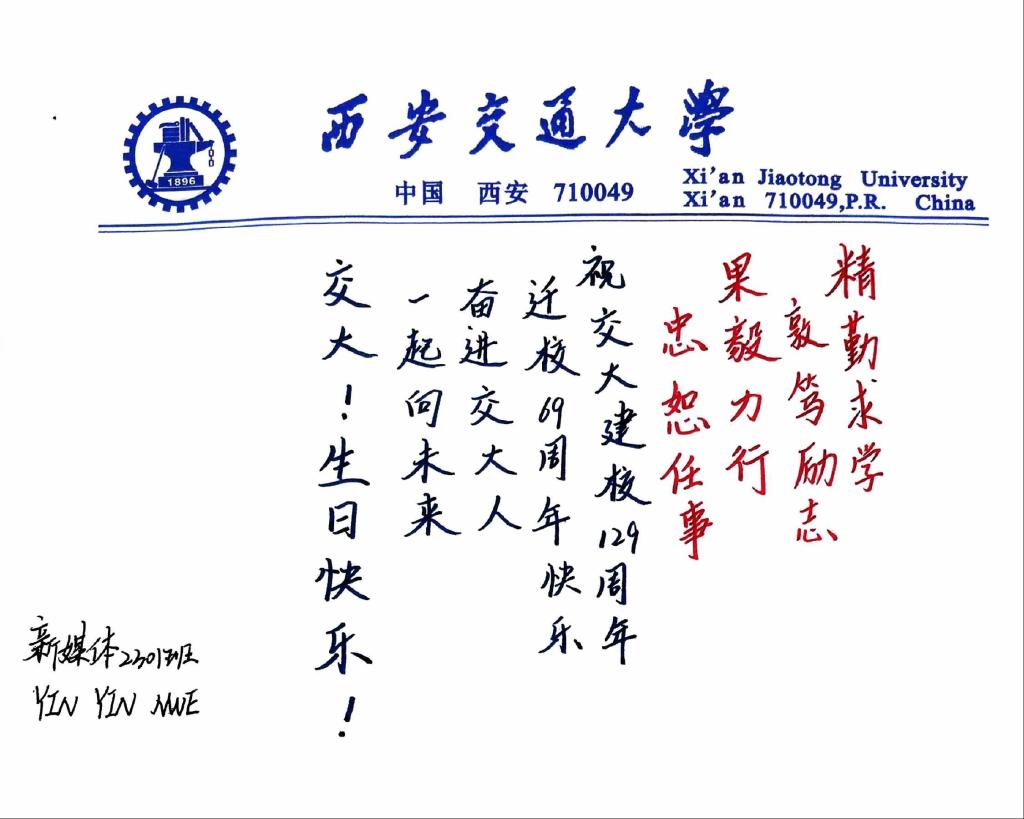 西安交通大學
中国 西安 710049
Xi'an Jiaotong University
Xi'an 710049,P.R. China
1896
精勤求学
敦笃励志
果毅力行
忠恕任事
祝交大建校129周年
迁校69周年快乐
奋进交大人
一起向未来
交大！生日快乐！
新媒体2301班
YIN YIN NWE